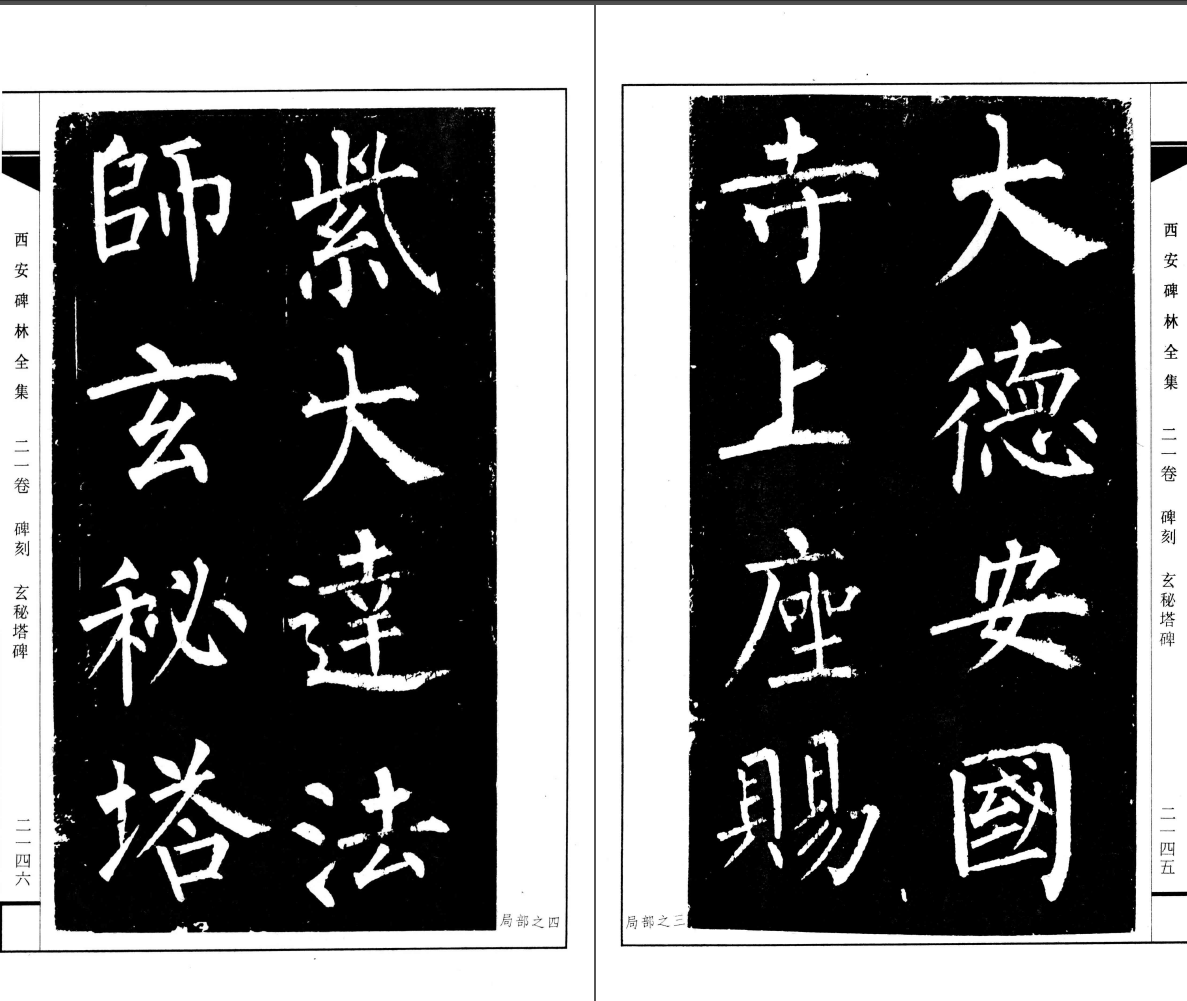 西安碑林全集 二一卷 碑刻 玄秘塔碑 二一四五
大德安國
寺上座賜
局部之三
局部之四
紫大達法
師玄秘塔
西安碑林全集 二一卷 碑刻 玄秘塔碑 二一四六